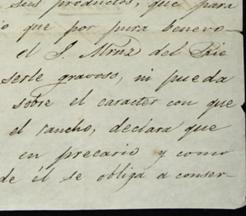 sus productos, que para
o que por pura benevo-
el S. Mrnz del Rio
serle gravoso, ni pueda
sobre el caracter con que
el rancho, declara que
en precario y como
de él se obliga a conser-